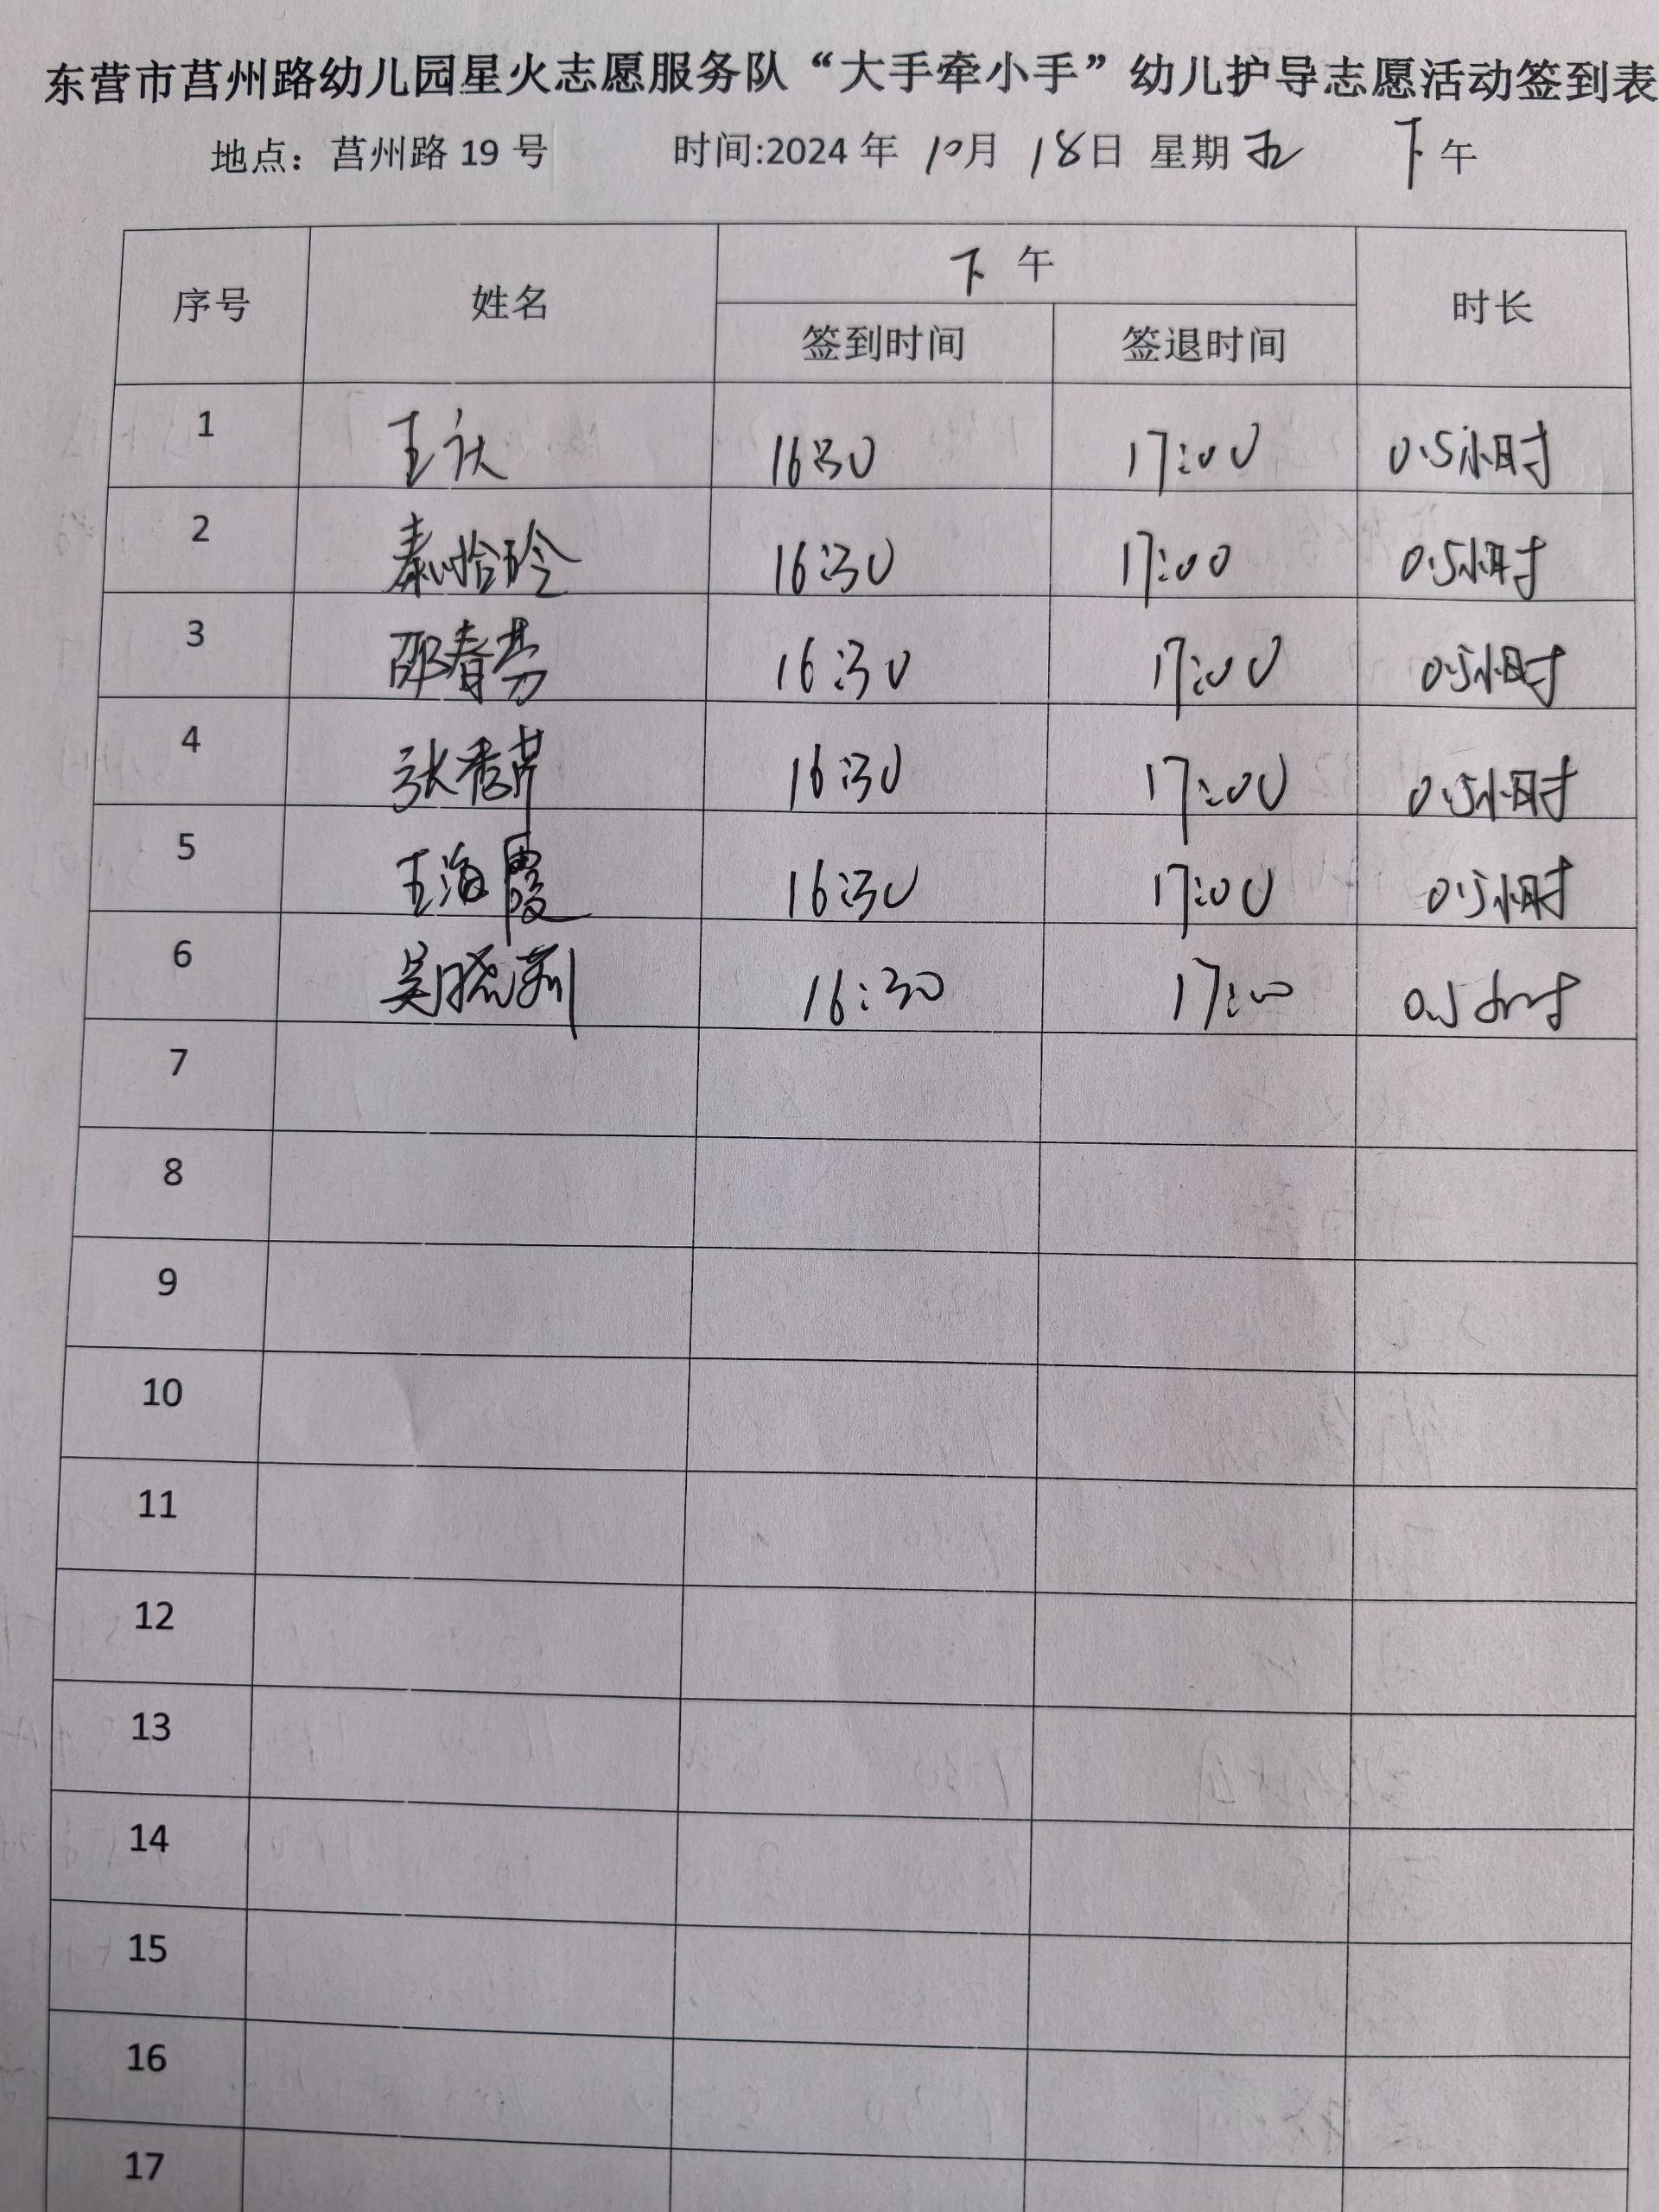 东营市莒州路幼儿园星火志愿服务队“大手牵小手”幼儿护导志愿活动签到表
地点：莒州路 19 号 时间:2024 年 10月 18日 星期五 下午
序号 姓名 下午 时长
签到时间 签退时间
1 王 16:30 17:00 0.5小时
2 秦怡玲 16:30 17:00 0.5小时
3 邵春芳 16:30 17:00 0.5小时
4 张秀芹 16:30 17:00 0.5小时
5 王海霞 16:30 17:00 0.5小时
6 吴晓莉 16:30 17:00 0.5小时
7
8
9
10
11
12
13
14
15
16
17